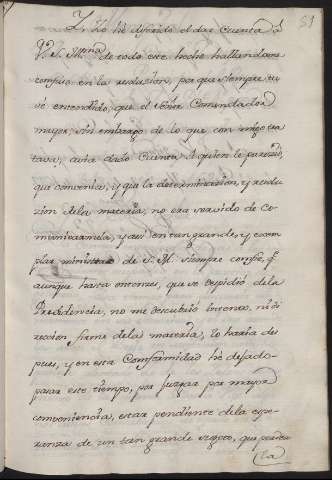 81
Y Yo hé diferido el dar Cuenta á
V. S. Illma de todo este hecho hallandome
confuso en la resolusion, por que siempre tu
vé entendido, que el Señor Comendador
mayor, sin embargo de lo que con migo tra
tava, avia dado Cuenta á quien le parezió,
que convenia, y q̃ la determinazion, y resolu
zion dela materia, no era servido de co
municarmela, y assi en tan grande, y exem
plar ministro de S. M. siempre confié, q̃
aunque hasta entonzes, que se despidió dela
Presidencia, no me descubrió intento, ni di
reccion firme dela materia, lo haria des
pues, y en esta Comformidad hé dejado
pasar este tiempo, por juzgar por mayor
conveniencia, estar pendiente dela espe
ranza de un tan grande sugeto, que
la